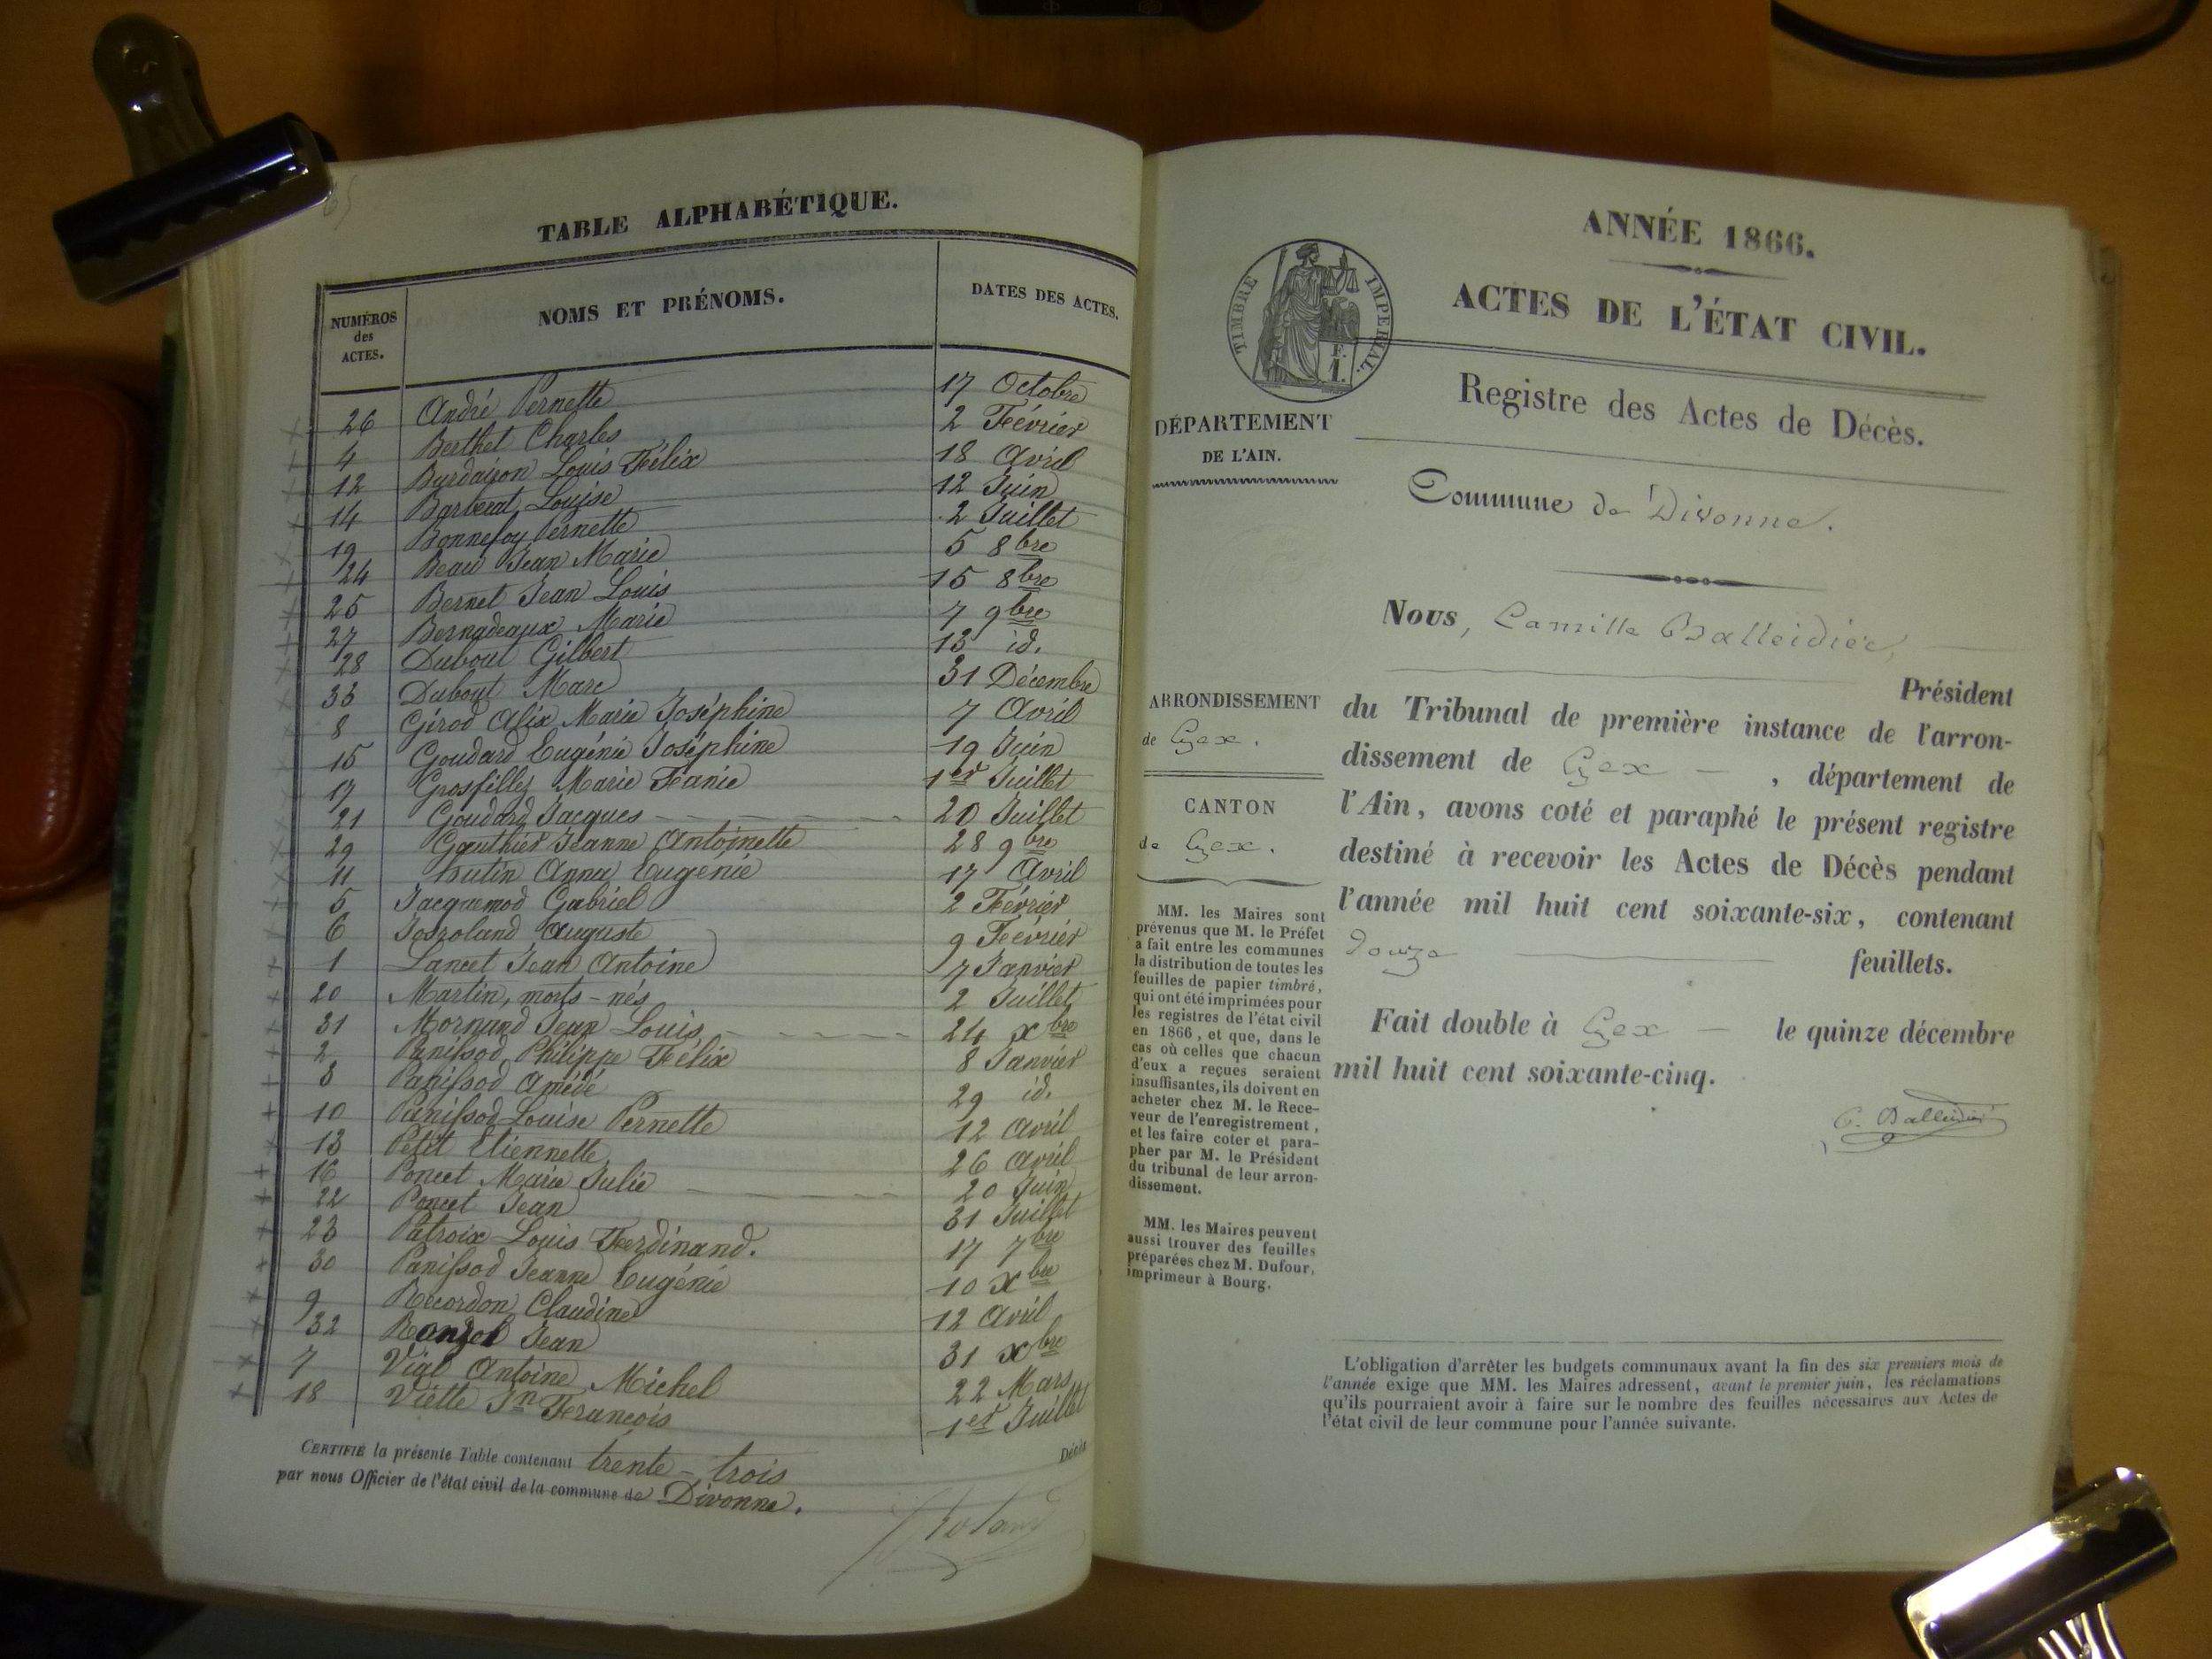 TABLE ALPHABÉTIQUE.
NUMÉROS des ACTES.
NOMS ET PRÉNOMS.
DATES DES ACTES.
26 André Pernette 17 Octobre
4 Berthet Charles 2 Février
12 Louis Félix 18 Avril
14 Louise 12 Juin
19 Bonnefoy Pernette 2 Juillet
24 Beau Jean Marie 5 8bre
25 Bernet Jean Louis 15 8bre
27 Bernadeaux Marie 7 9bre
28 Dubout Gilbert 13 id.
33 Dubout Marc 31 Décembre
8 Girod Alix Marie Joséphine 7 Avril
15 Goudard Eugénie Joséphine 19 Juin
17 Grosfilley Marie Fanie 1er Juillet
21 Goudard Jacques 20 Juillet
29 Gauthier Jeanne Antoinette 28 9bre
11 hutin Anna Eugénie 17 Avril
5 Jacquemod Gabriel 2 Février
6 Josroland Auguste 9 Février
1 Lancet Jean Antoine 7 Janvier
20 Martin, morts-nés 2 Juillet
31 Mornand Jean Louis 24 xbre
2 Panissod Philippe Félix 8 Janvier
3 Panissod Amédé 29 id.
10 Panissod Louise Pernette 12 Avril
13 Petit Etiennette 26 Avril
16 Poncet Marie Julie 20 Juin
22 Poncet Jean 31 Juillet
23 Patroix Louis Ferdinand. 17 7bre
30 Panissod Jeanne Eugénie 10 xbre
9 Recordon Claudine 12 Avril
32 Jean 31 xbre
7 Vial Antoine Michel 22 Mars
18 Viette Jn François 1er Juillet
CERTIFIÉ la présente Table contenant trente-trois Décès
par nous Officier de l'état civil de la commune de Divonne.
Roland
ANNÉE 1866.
ACTES DE L'ÉTAT CIVIL.
TIMBRE IMPÉRIAL.
F. 1.
Registre des Actes de Décès.
DÉPARTEMENT
DE L'AIN.
Commune de Divonne.
ARRONDISSEMENT
de Gex.
CANTON
de Gex.
MM. les Maires sont
prévenus que M. le Préfet
a fait entre les communes
la distribution de toutes les
feuilles de papier timbré,
qui ont été imprimées pour
les registres de l'état civil
en 1866, et que, dans le
cas où celles que chacun
d'eux a reçues seraient
insuffisantes, ils doivent en
acheter chez M. le Rece-
veur de l'enregistrement,
et les faire coter et para-
pher par M. le Président
du tribunal de leur arron-
dissement.
MM. les Maires peuvent
aussi trouver des feuilles
préparées chez M. Dufour,
imprimeur à Bourg.
Nous, Camille Balleidier,
Président
du Tribunal de première instance de l'arron-
dissement de Gex, département de
l'Ain, avons coté et paraphé le présent registre
destiné à recevoir les Actes de Décès pendant
l'année mil huit cent soixante-six, contenant
Douze feuillets.
Fait double à Gex le quinze décembre
mil huit cent soixante-cinq.
C. Balleidier
L'obligation d'arrêter les budgets communaux avant la fin des six premiers mois de
l'année exige que MM. les Maires adressent, avant le premier juin, les réclamations
qu'ils pourraient avoir à faire sur le nombre des feuilles nécessaires aux Actes de
l'état civil de leur commune pour l'année suivante.